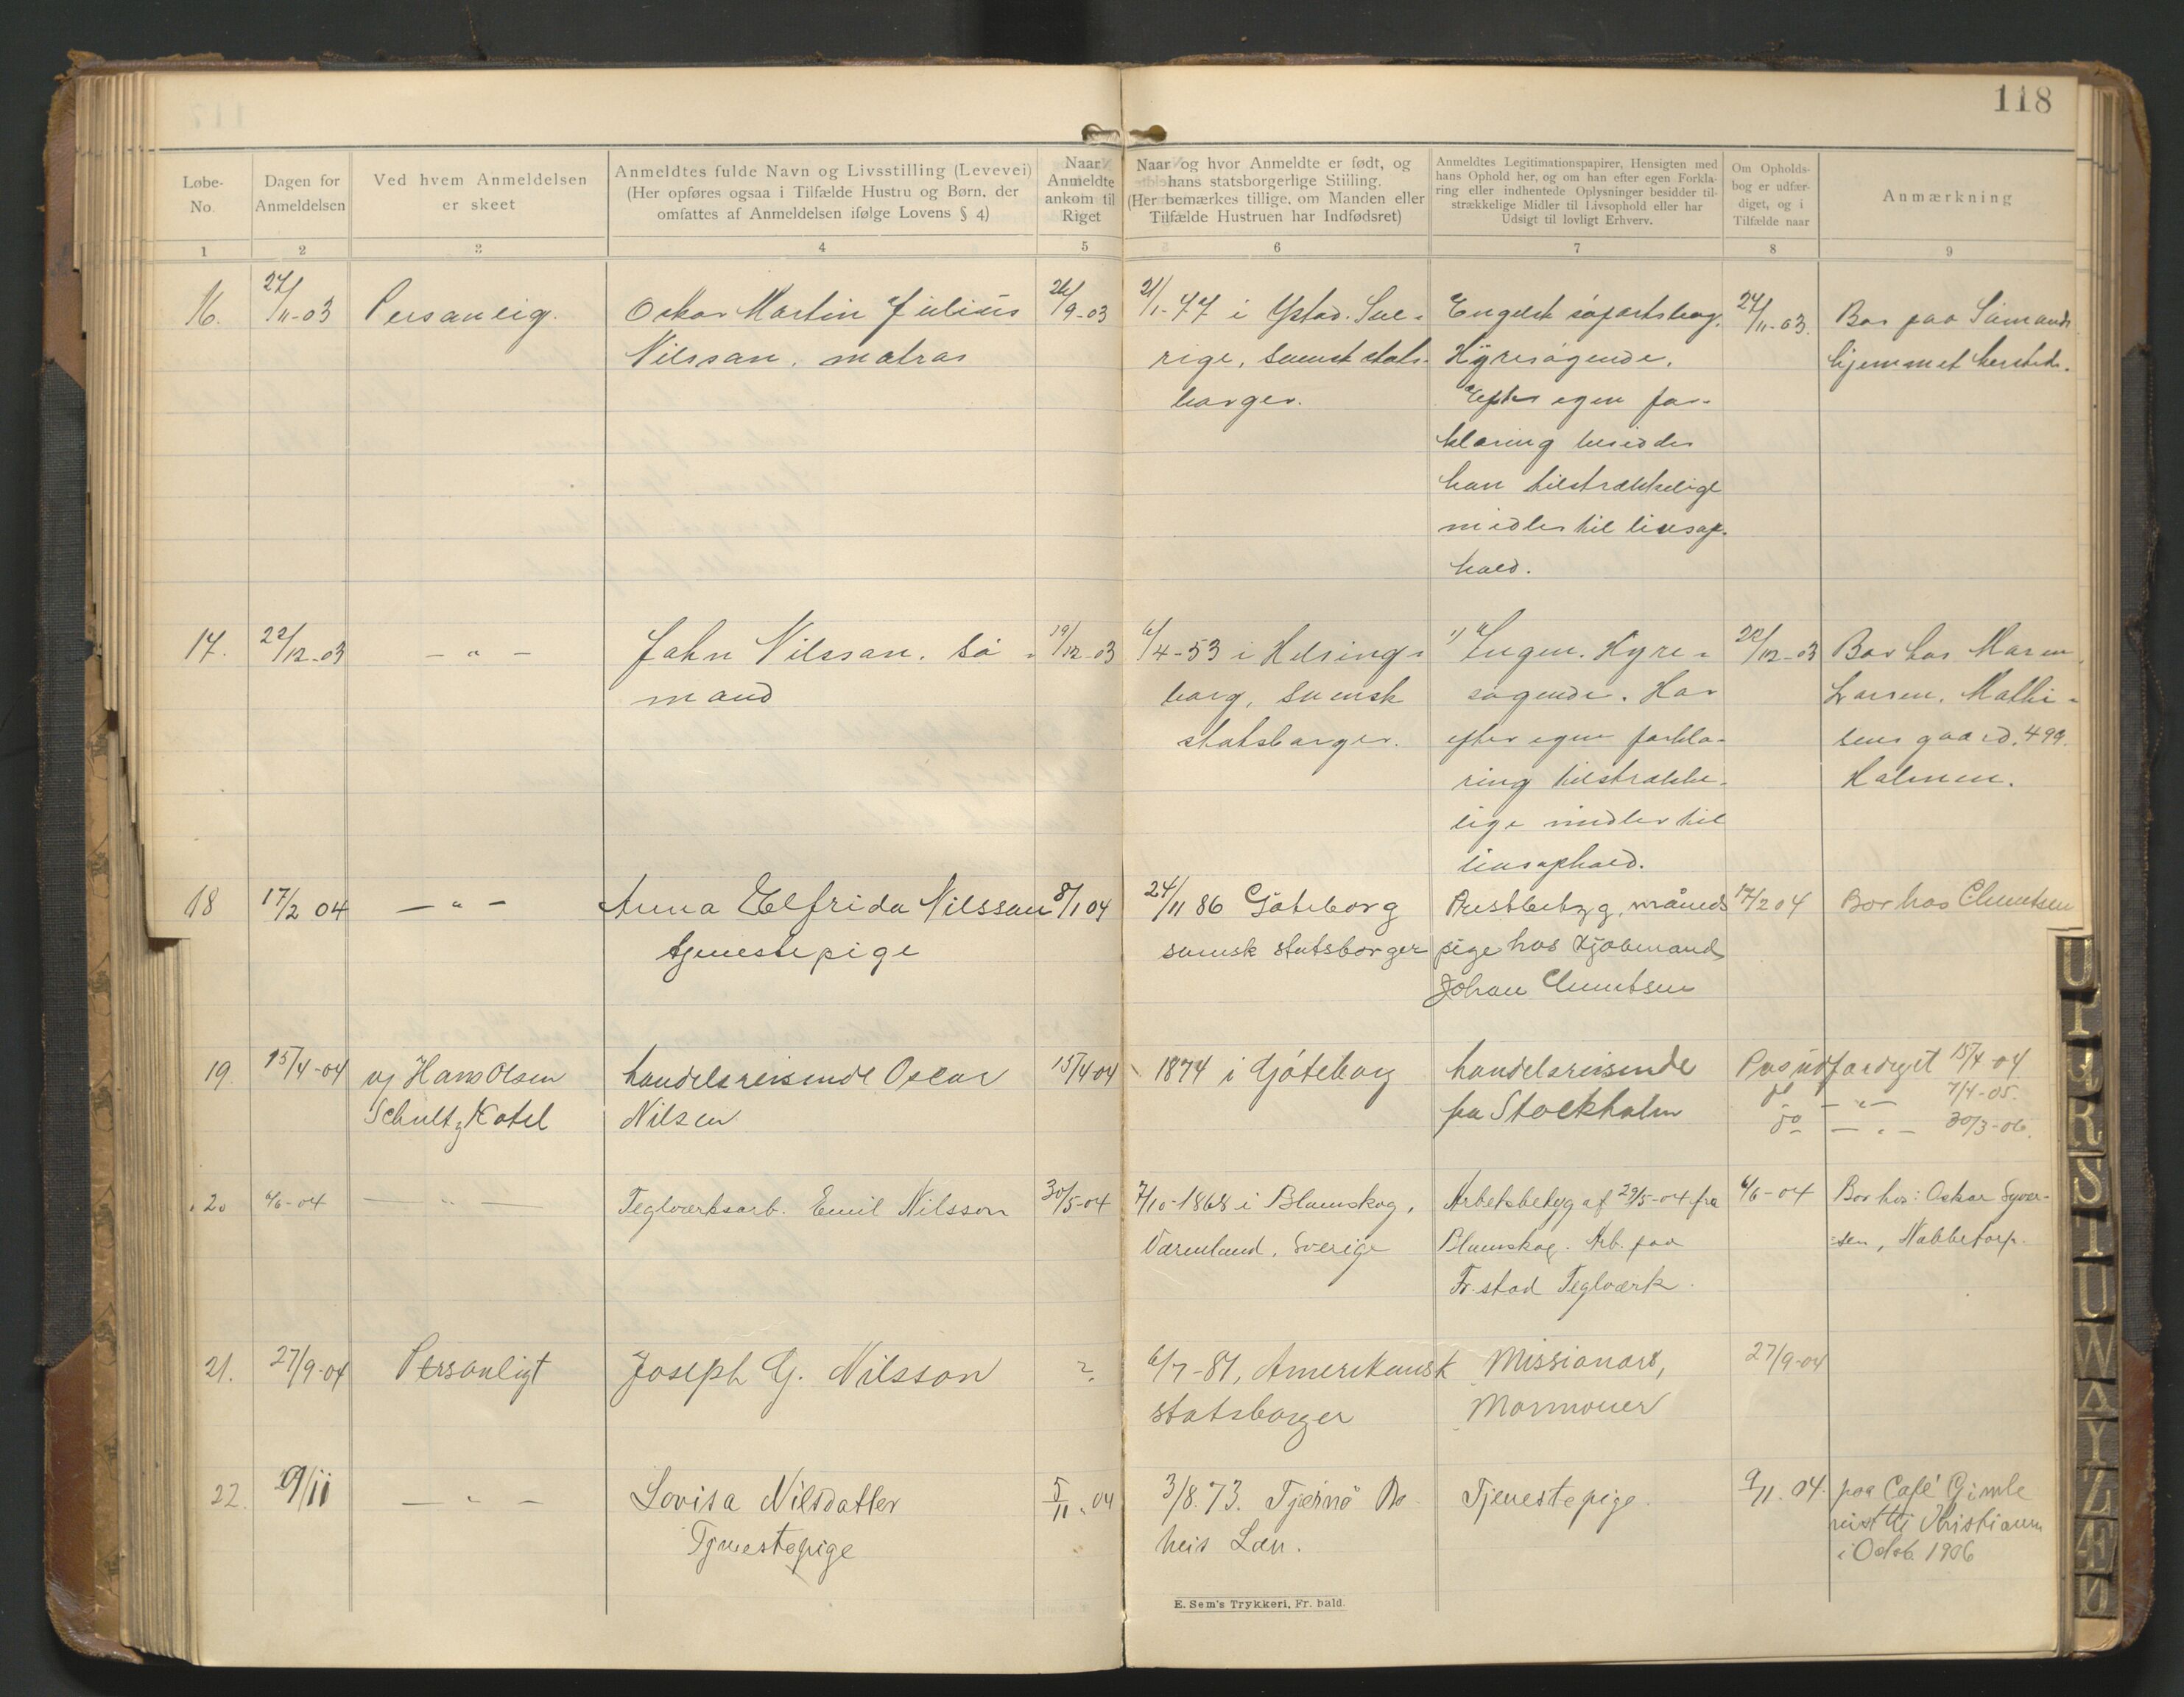 118
Løbe-
No.
Dagen for
Anmeldelsen
Ved hvem Anmeldelsen
er skeet
Anmeldtes fulde Navn og Livsstilling (Levevei)
(Her opføres ogsaa i Tilfælde Hustru og Børn, der
omfattes af Anmeldelsen ifølge Lovens § 4)
Naar
Anmeldte
ankom til
Riget
Naar og hvor Anmeldte er født, og
hans statsborgerlige Stilling.
(Her bemærkes tillige, om Manden eller
Tilfælde Hustruen har Indfødsret)
Anmeldtes Legitimationspapirer, Hensigten med
hans Ophold her, og om han efter egen Forkla-
ring eller indhentede Oplysninger besidder til-
strækkelige Midler til Livsophold eller har
Udsigt til lovligt Erhverv.
Om Opholds-
bog er udfær-
diget, og i
Tilfælde naar
Anmærkning
1 2 3 4 5 6 7 8 9
16.
24/11-03
Personlig.
Oskar Martin Julius
Nilsson, matros
26/9-03
21/1-77 i Ystad. Sve-
rige, svensk stats-
borger.
Engelsk søfartsbog.
Hyresøgende.
Efter egen for-
klaring besidder
han tilstrækkelige
midler til livsop-
hold.
24/11-03.
Bor paa Sømands
hjemmet hersteds.
17.
22/12-03
— " —
John Nilsson. Sø-
mand
19/12-03
6/4-53 i Helsing-
borg, svensk
statsborger.
1) Ingen. Hyre-
søgende. Har
efter egen forkla-
ring tilstrække-
lige midler til
livsophold.
22/12-03
Bor hos Maren
Larsen. Mathi-
sens gaard. 499.
Holmen.
18
17/2 04
— " —
Anna Elfrida Nilsson
tjenestepige
8/1 04
24/11 86 Göteborg
svensk statsborger
Prestbetyg, måneds
pige hos Kjøbmand
Johan Clemetsen
17/2 04
Bor hos Clemetsen
19.
15/4-04
v/ Hans Olsen
Schultz Hotel
handelsreisende Oscar
Nilsen
15/4 04
1874 i Göteborg
handelsreisende
fra Stockholm
Pas udfærdiget 15/4-04
do — " — 7/4-05.
do — " — 30/3-06.
20
6/6-04
— " —
Teglværksarb. Emil Nilsson
30/5-04
7/10-1868 i Blomskog,
Värmland, Sverige
Arbetsbetyg af 29/5-04 fra
Blomskog. Arb. paa
Fr.stad Teglværk.
6/6-04
Bor hos: Oskar Syver-
sen, Nabbetorp.
21.
27/9-04
Personligt
Joseph G. Nilsson
?
6/7-81, Amerikansk
statsborger
Missionær,
Mormoner
27/9-04
22.
9/11
— " —
Lovisa Nilsdatter
Tjenestepige
5/11.04
3/8.73. Tjernö Bo-
heis Læn.
Tjenestepige.
9/11.04.
paa Café Gimle
reist til Kristiania
i Octob. 1906
E. Sem's Trykkeri, Fr. hald.
U
R
S
T
U
W
A
Y
Z
Æ
Ø